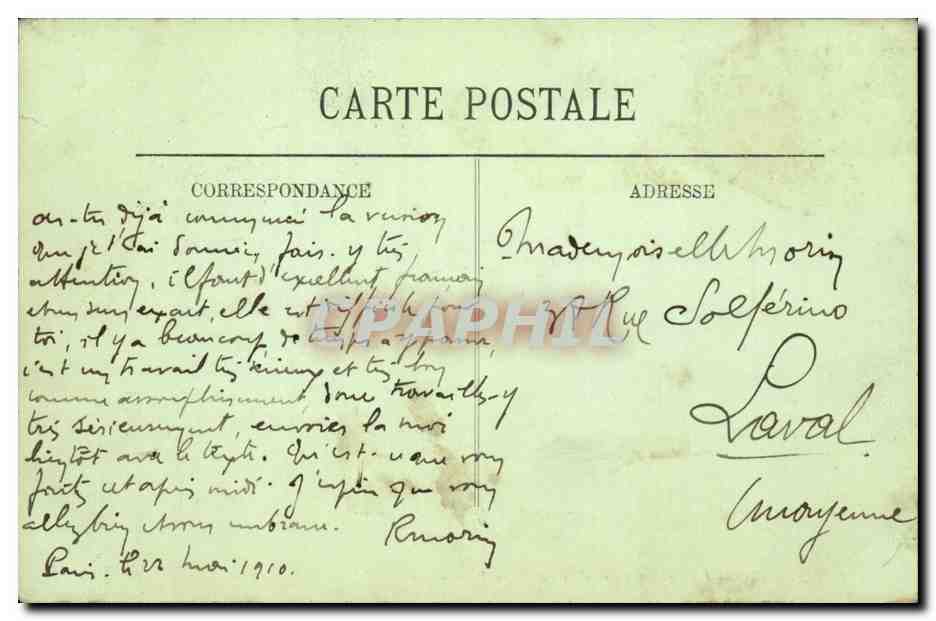 CARTE POSTALE
CORRESPONDANCE
ADRESSE
as-tu déjà commencé la version
que je t'ai donnée, fais-y très
attention, il faut d'excellent français
et un sens exact, elle est difficile pour
toi, il y a beaucoup de à
c'est un travail très sérieux et très bon
comme assouplissement, donc travailles-y
très sérieusement, envoies la moi
bientôt avec le texte. Qu'est-ce que vous
faites cet après midi. J'espère que vous
allez bien et vous embrasse.
R Morin
Paris. le 22 mai 1910.
Mademoiselle Morin
Rue Solférino
Laval
Mayenne
CPAPHIL